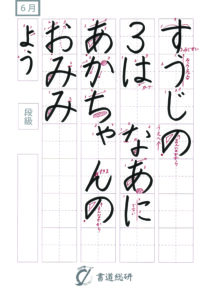 6月
すうじの
3は　なあに
あかちゃんの
おみみ
よう
段級
書道総研